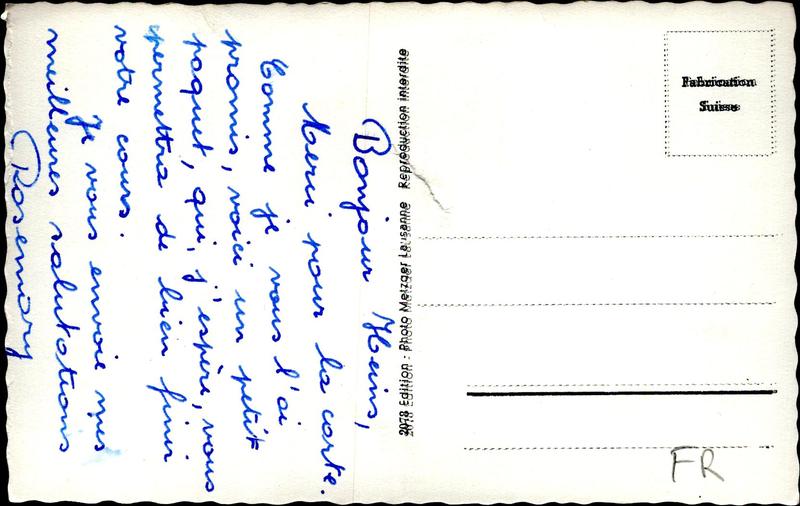 Bonjour Heins,
Merci pour la carte.
Comme je vous l'ai
promis, voici un petit
paquet, qui, j'espère, vous
permettra de bien finir
votre cours.
Je vous envoie mes
meilleures salutations
Rosemary
2078 Edition - Photo Metzger Lausanne Reproduction interdite
Fabrication
Suisse
FR